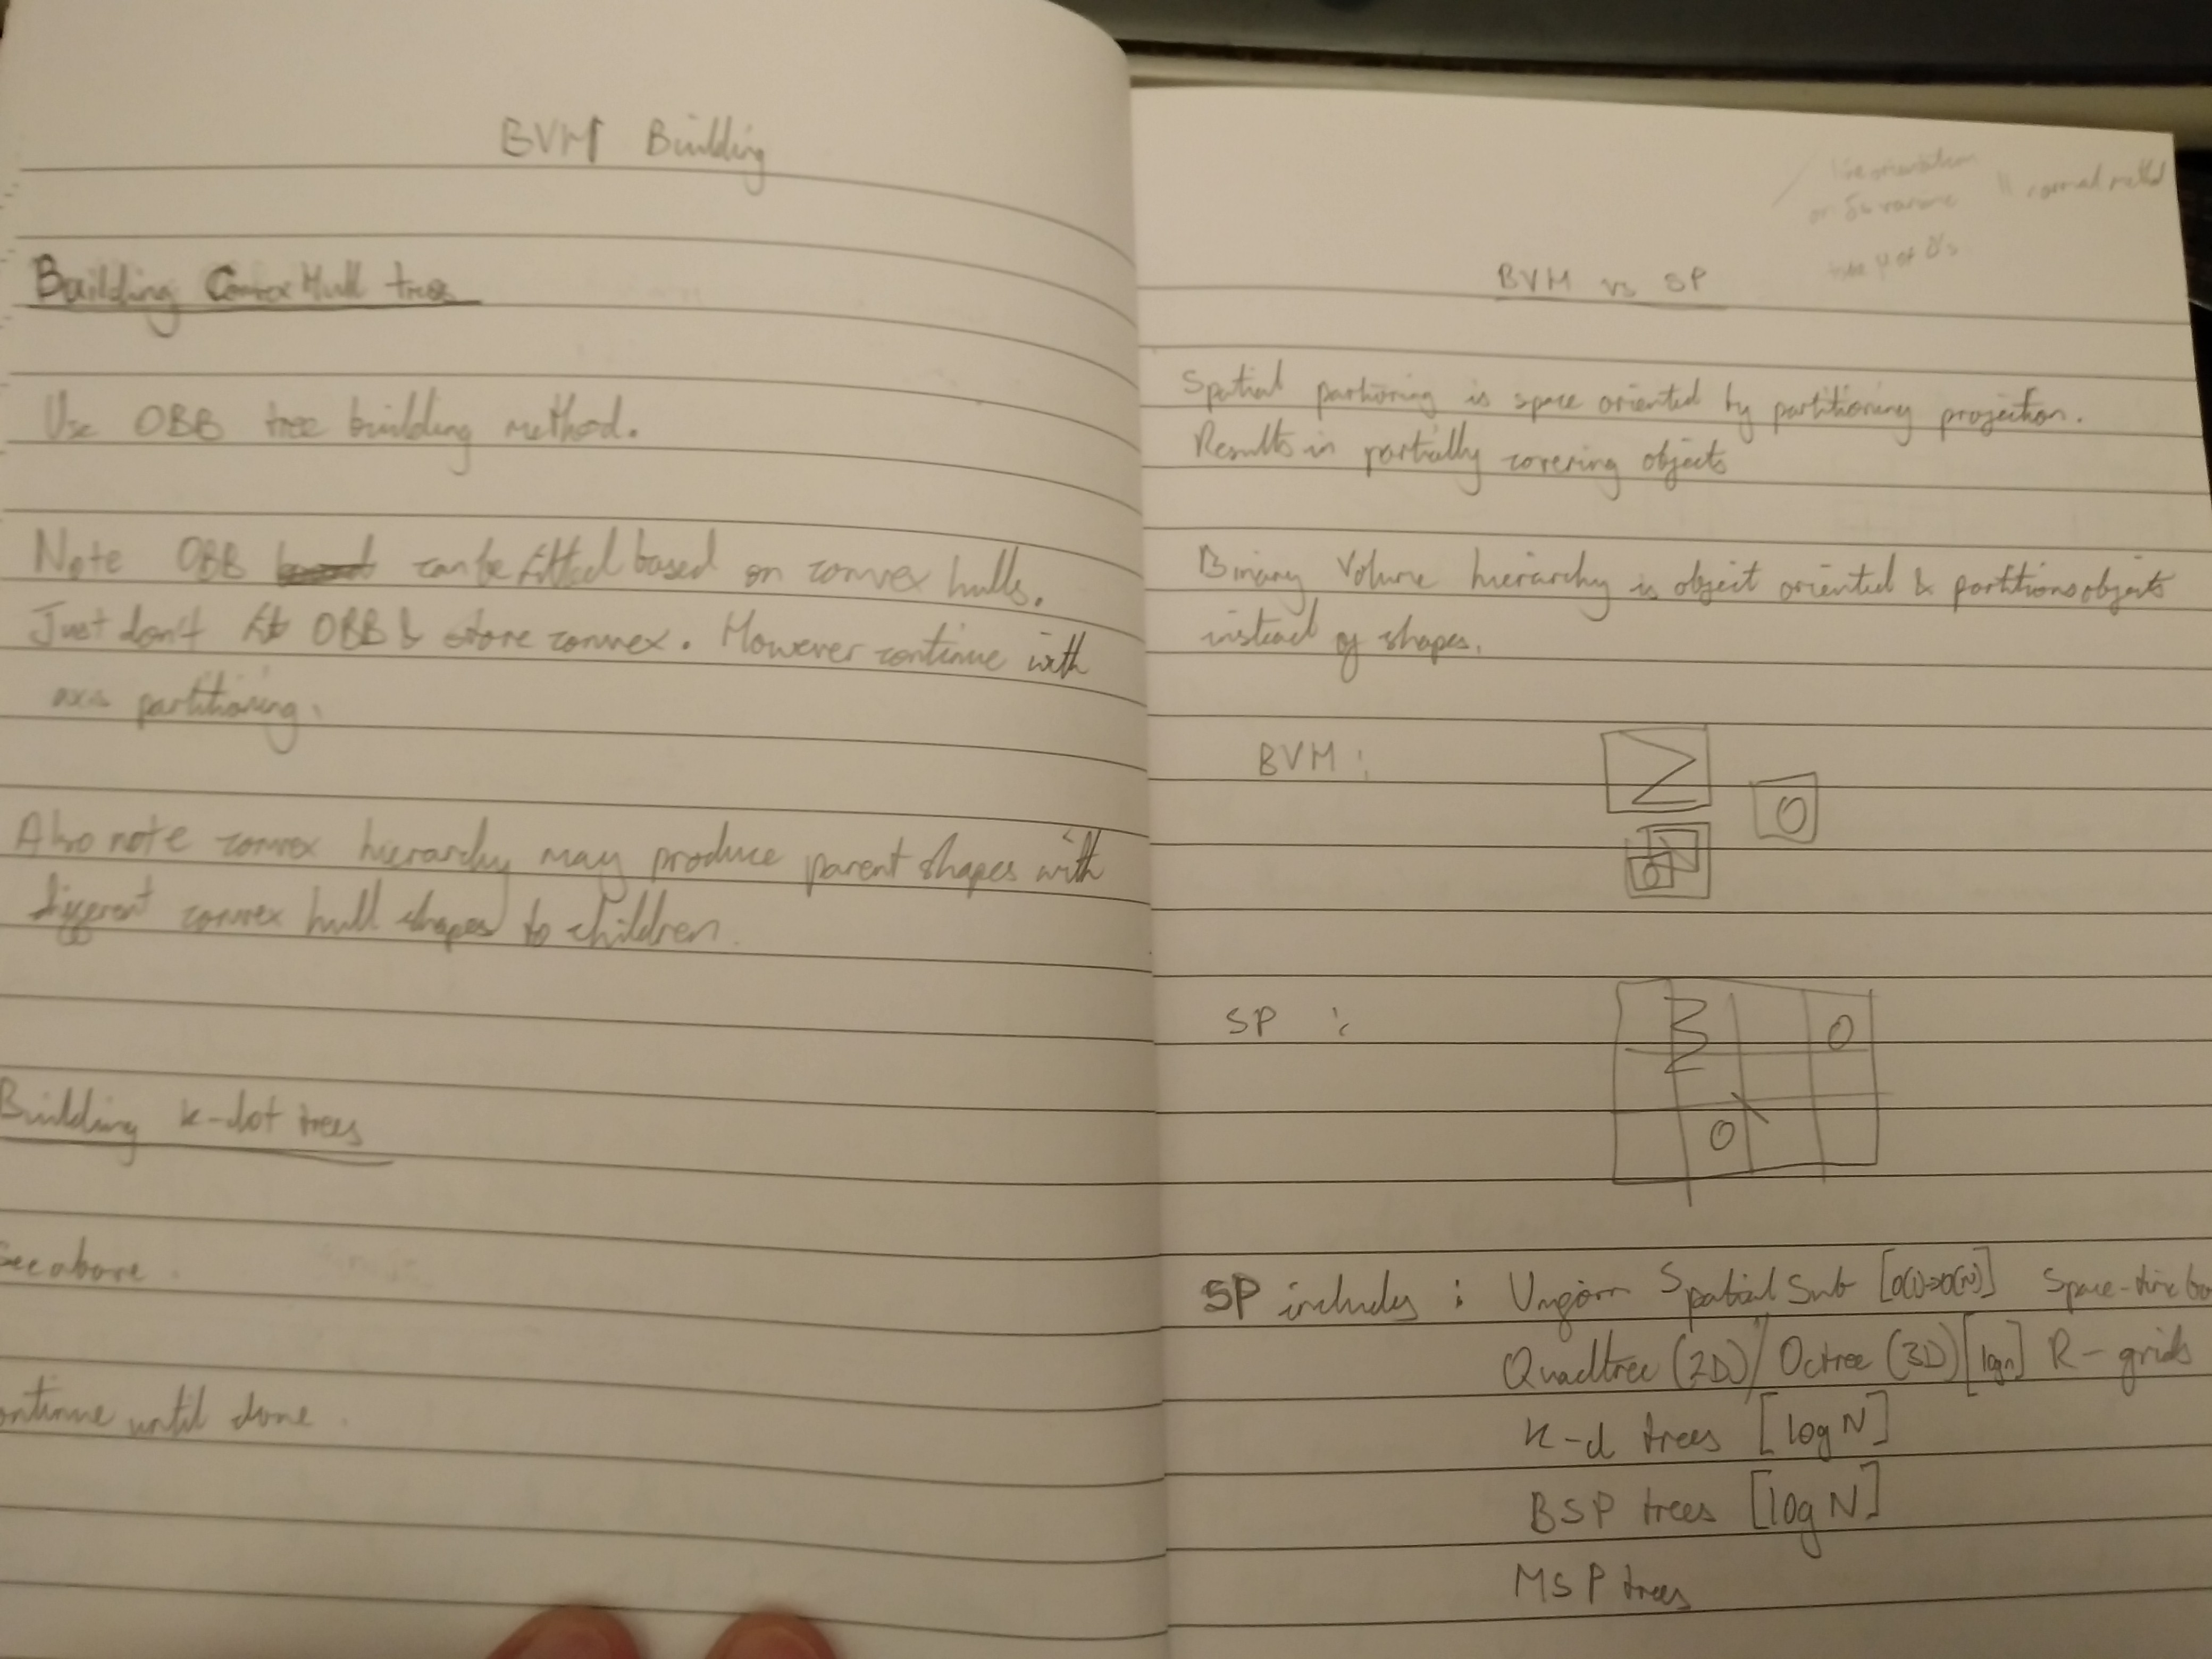 BVH Building
Building Convex Hull trees
Use OBB tree building method.
Note OBB can be fitted based on convex hulls.
Just don't fit OBB & store convex. However continue with
axis partitioning.
Also note convex hierarchy may produce parent shapes with
different convex hull shapes to children.
Building k-dot trees
See above.
ontinue until done.
normal method
BVH vs SP
Spatial partioning is space oriented by partitioning projection.
Results in partially covering objects
Binary Volume hierarchy is object oriented & partitions objects
instead of shapes.
BVH :
SP :
SP includes : Uniform Spatial Sub [O(1)->O(N)] Space-time
Quadtree (2D) / Octree (3D) [log n] R-grids
K-d trees [log N]
BSP trees [log N]
MSP trees